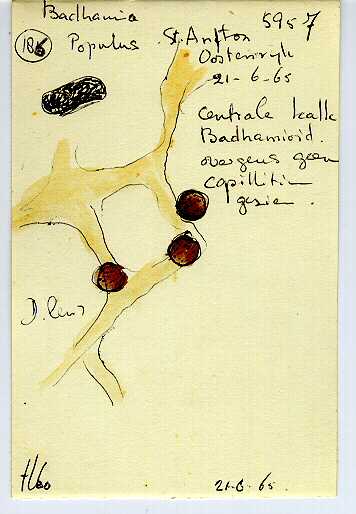 Badhamia 5957
186 Populus St. Anton
Oostenrijk
21-6-65
Centrale kalk
Badhamioid.
overgens geen
capillitium
gezien.
D. lens
21-6-65.